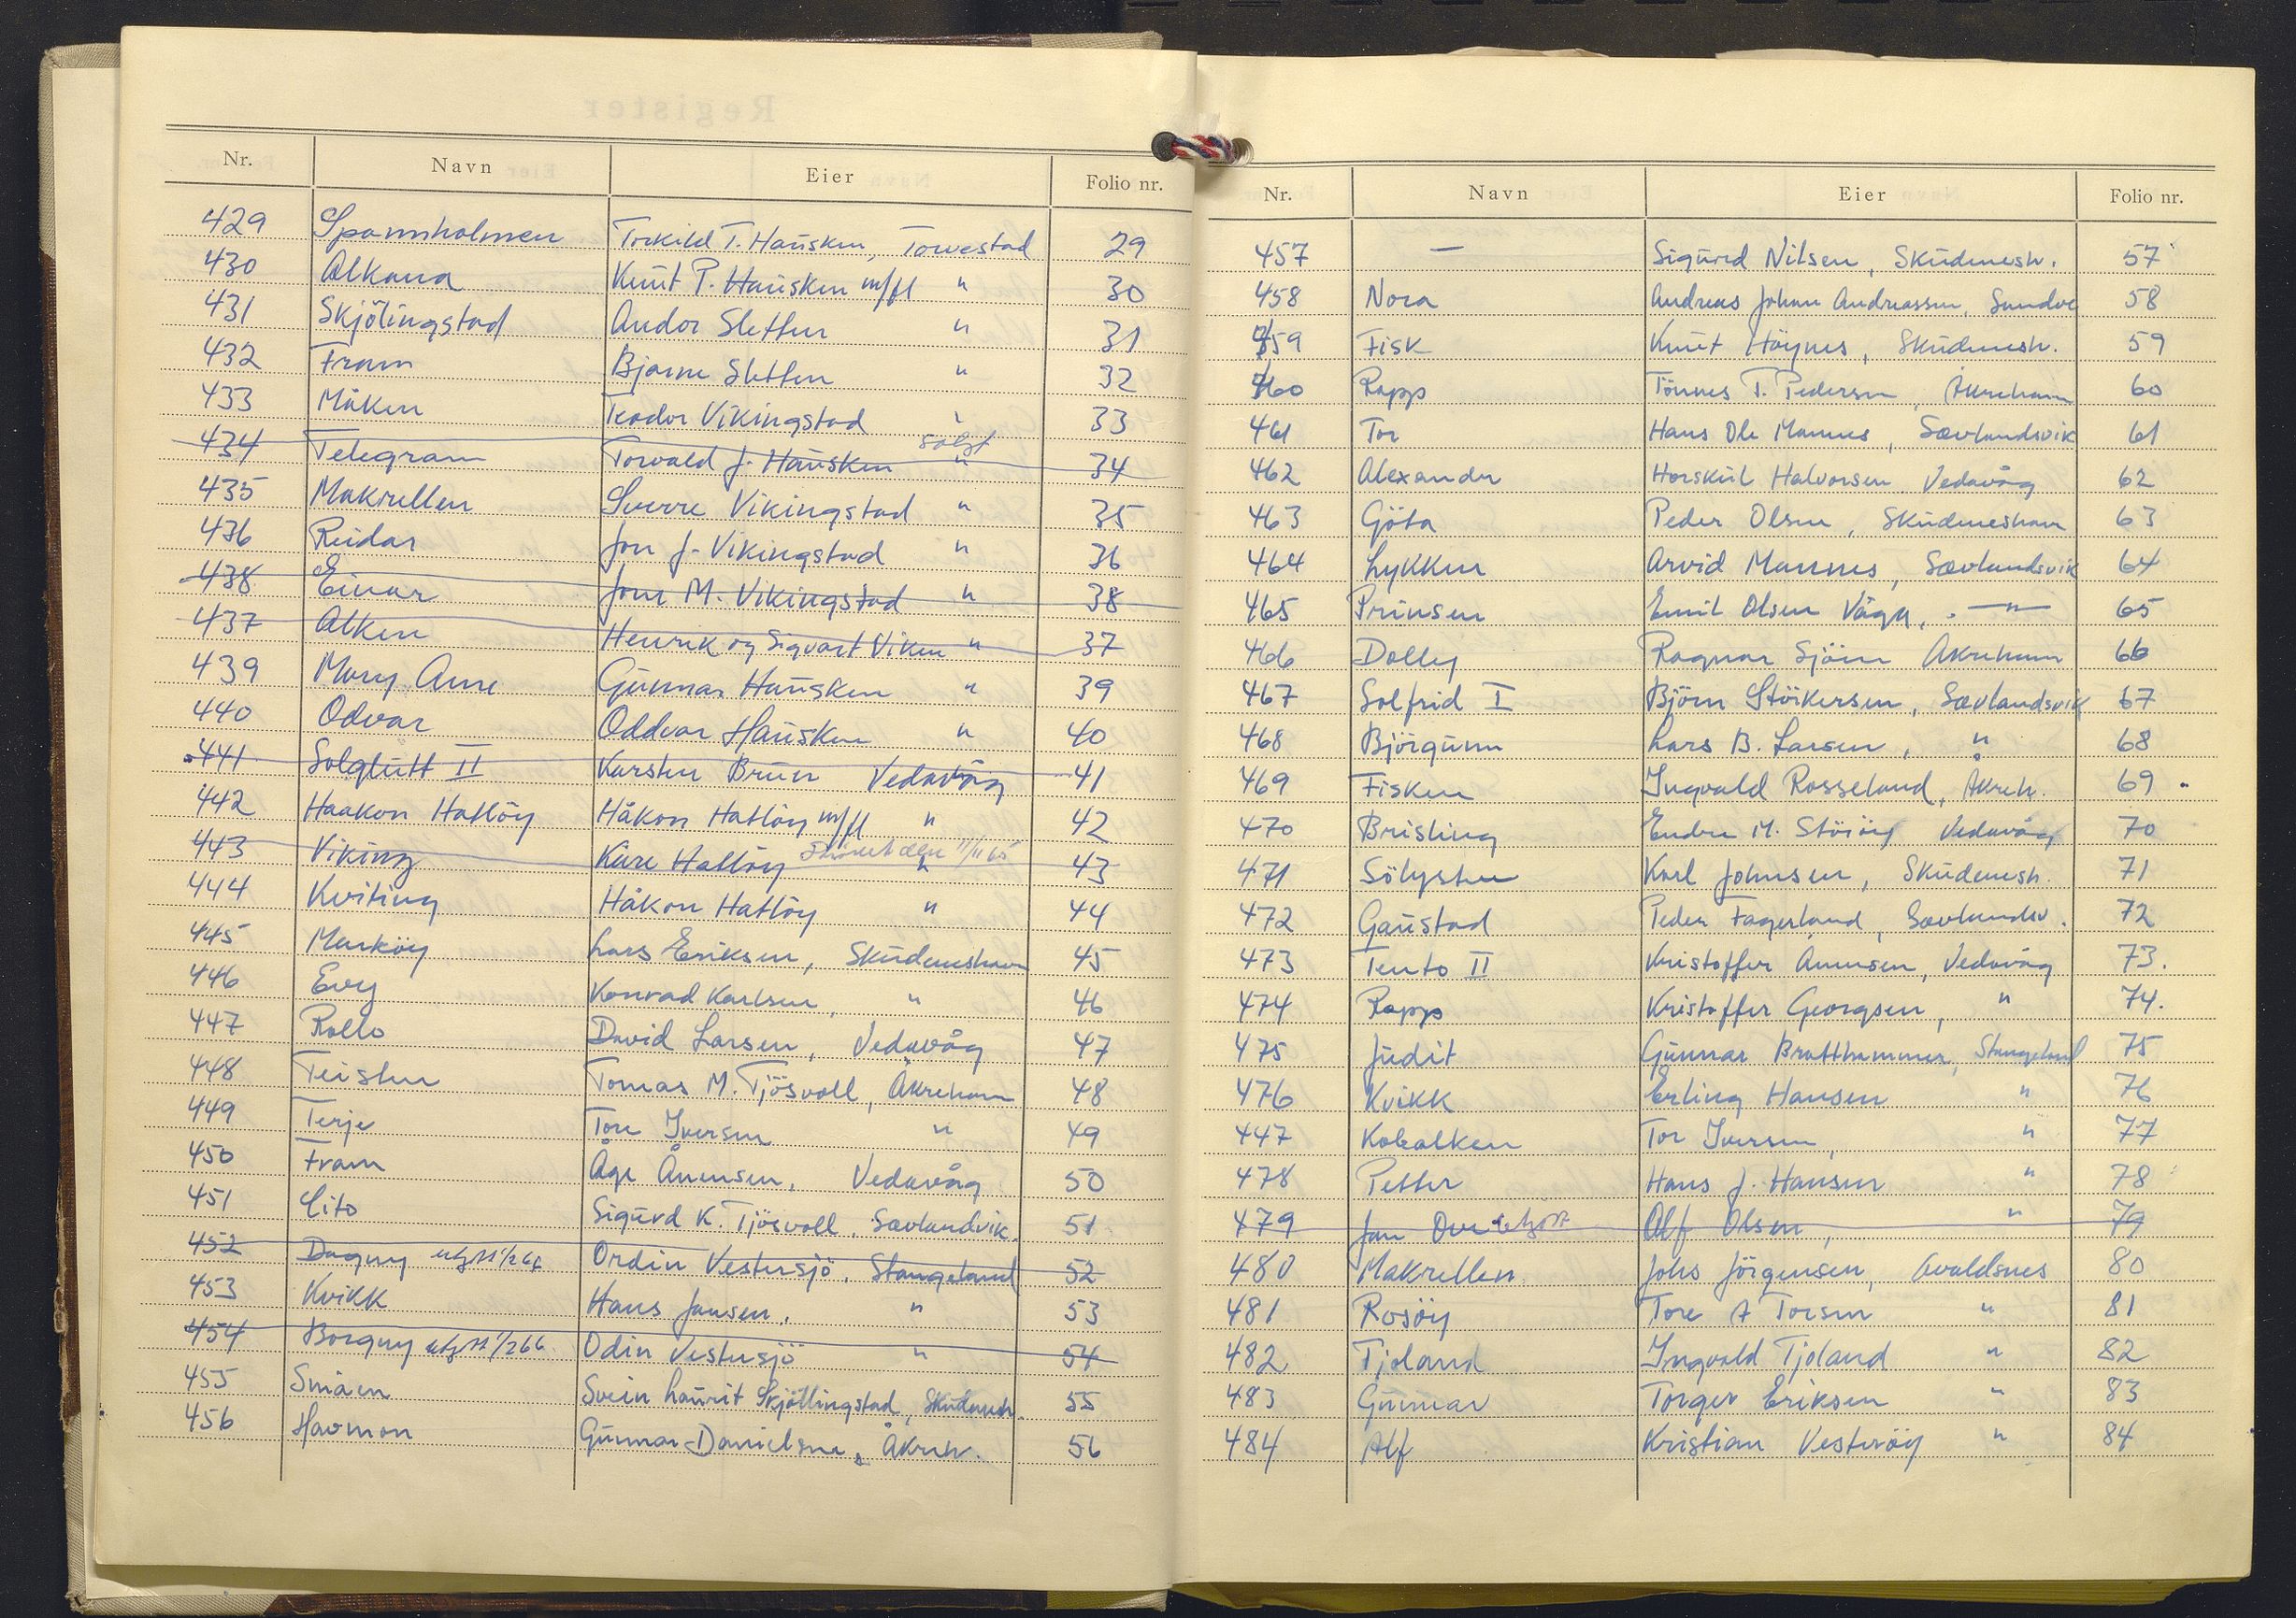 Nr. Navn Eier Folio nr.
429 Spannholmen Torkild T. Hausken, Torvestad 29
430 Alkana Knut P. Hausken m/fl " 30
431 Skjölingstad Andor Sletten " 31
432 Fram Bjarne Sletten " 32
433 Måken Teodor Vikingstad " 33
434 Telegram Torvald J. Hausken solgt " 34
435 Makrellen Sverre Vikingstad " 35
436 Reidar Jon J. Vikingstad " 36
438 Einar Jone M. Vikingstad " 38
437 Alken Henrik og Sigvart Viken " 37
439 Mary Ann Gunnar Hausken " 39
440 Odvar Oddvar Hausken " 40
441 Solglutt II Karsten Brun Vedavåg 41
442 Haakon Hatlöy Håkon Hatlöy m/fl " 42
443 Viking Kåre Hatlöy " 43
444 Kviting Håkon Hatlöy " 44
445 Marköy Lars Eriksen, Skudeneshavn 45
446 Evy Konrad Karlsen, " 46
447 Rollo David Larsen, Vedavåg 47
448 Teisten Tomas M. Tjösvoll, Åkrehamn 48
449 Terje Tore Iversen " 49
450 Fram Åge Ånensen, Vedavåg 50
451 Cito Sigurd K. Tjösvoll, Sævlandvik. 51
452 Dagny Ordin Vestersjö, Stangeland 52
453 Kvikk Hans Jansen, " 53
454 Borgny Odin Vestersjö " 54
455 Småen Svein Laurit Skjöllingstad, Skudenesh. 55
456 Havmon Gunnar Danielsen, Åkreh. 56
Nr. Navn Eier Folio nr.
457 — Sigurd Nilsen, Skudenesh. 57
458 Nora Andreas Johan Andreassen, Sandve 58
459 Fisk Knut Höynes, Skudenesh. 59
460 Rapp Tönnes T. Pedersen, Åkrehamn 60
461 Tor Hans Ole Mannes, Sævlandsvik 61
462 Alexander Horskul Halvorsen Vedavåg 62
463 Göta Peder Olsen, Skudeneshavn 63
464 Lykken Arvid Mannes, Sævlandsvik 64
465 Prinsen Emil Olsen Våga, — " — 65
466 Dolly Ragnar Sjöen Åkrehamn 66
467 Solfrid I Björn Störkersen, Sævlandsvik 67
468 Björgunn Lars B. Larsen, " 68
469 Fisken Ingvald Rosseland, Åkreh. 69
470 Brisling Endre M. Störöy Vedavåg 70
471 Sölysten Karl Johnsen, Skudenesh. 71
472 Gaustad Peder Fagerland, Sævlandsv. 72
473 Tento II Kristoffer Ånensen, Vedavåg 73.
474 Rapp Kristoffer Georgsen, " 74.
475 Judit Gunnar Bratthammer, Stangeland 75
476 Kvikk Erling Hansen " 76
447 Kobalken Tor Iversen, " 77
478 Petter Hans J. Hansen " 78
479 Jan Ove Olf Olsen, " 79
480 Makrellen Johs Jörgensen, Avaldsnes 80
481 Rosöy Tore A Torsen " 81
482 Tjoland Ingvald Tjoland " 82
483 Gunnar Torger Eriksen " 83
484 Alf Kristian Vesteröy " 84